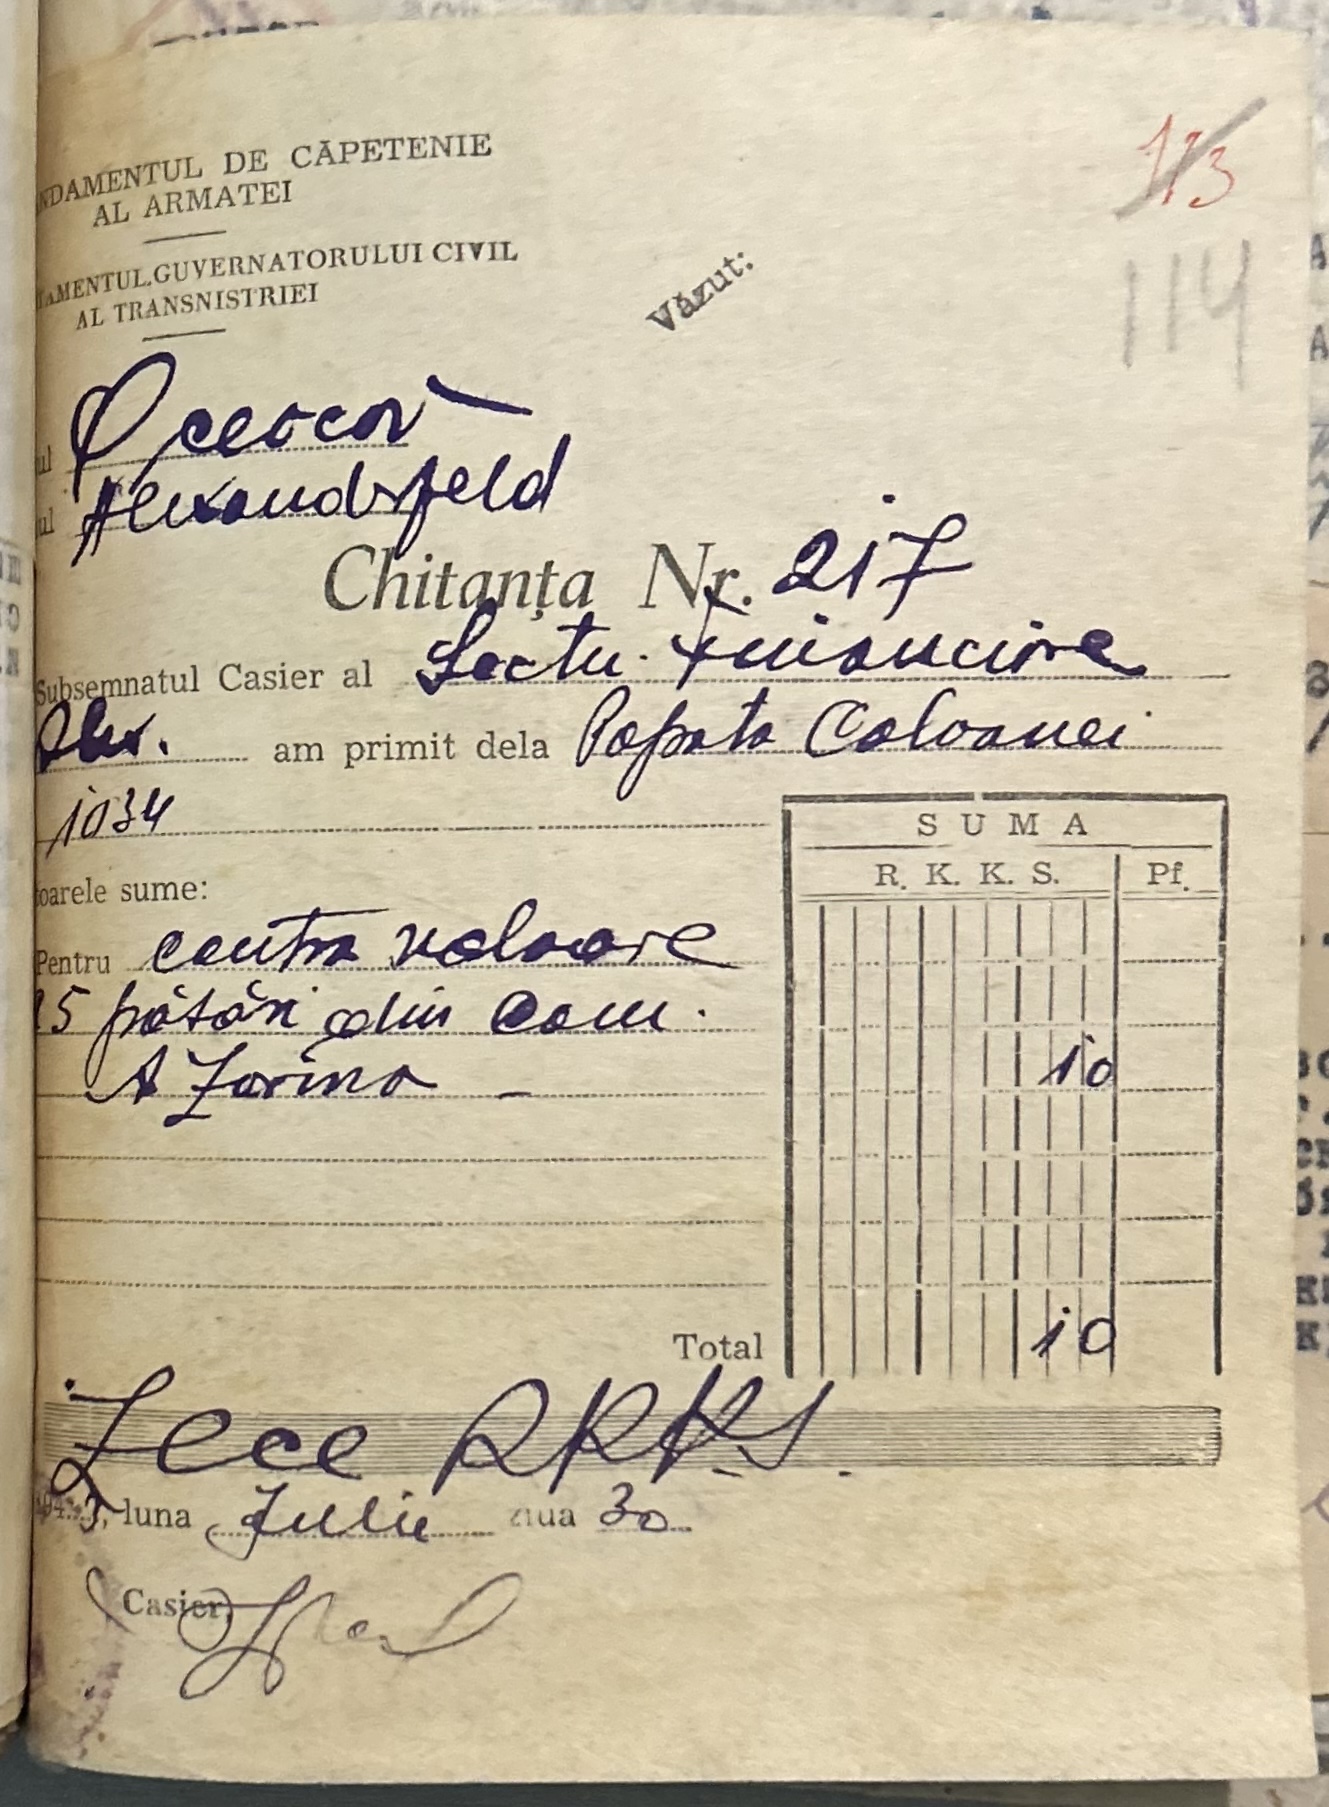 113
114
NDAMENTUL DE CĂPETENIE
AL ARMATEI
TAMENTUL GUVERNATORULUI CIVIL
AL TRANSNISTRIEI
Văzut:
ul Oceacov
ul Alexandrfeld
Chitanța Nr. 217
Subsemnatul Casier al Sectu. Financiare
Alex. am primit dela Popota Coloanei
1034
SUMA
R. K. K. S. Pf.
oarele sume:
Pentru contra valoare
15 pătări din Com.
A Zarina 10
Total 10
Zece RKKS.
194 3, luna Julie ziua 30
Casier,